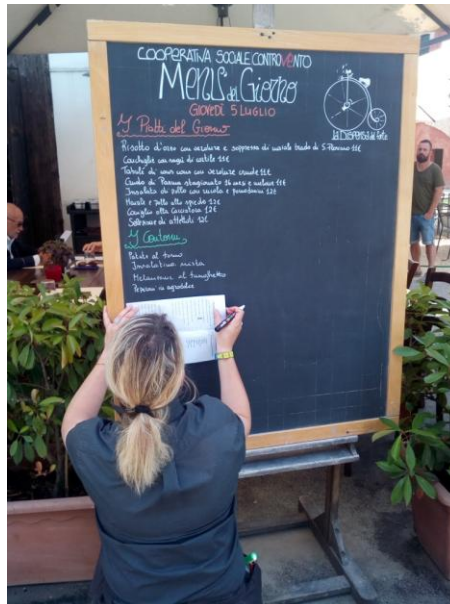 COOPERATIVA SOCIALE CONTROVENTO
Menu del Giorno
GIOVEDÌ 5 LUGLIO
La DISPENSA del
I Piatti del Giorno
Risotto d'orzo con verdure e soppressa di maiale brado di S. 11€
Conchiglie con ragù di cortile 11€
Tabulè di cous cous con verdure crude 11€
Crudo di Parma stagionato 16 mesi e melone 11€
Insalata di pollo con rucola e pomodorini 12€
Maiale e pollo allo spiedo 12€
Coniglio alla Cacciatora 12€
Selezione di affettati 12€
I Contorni
Patate al forno
Insalatina mista
Melanzane al funghetto
Peperoni in agrodolce